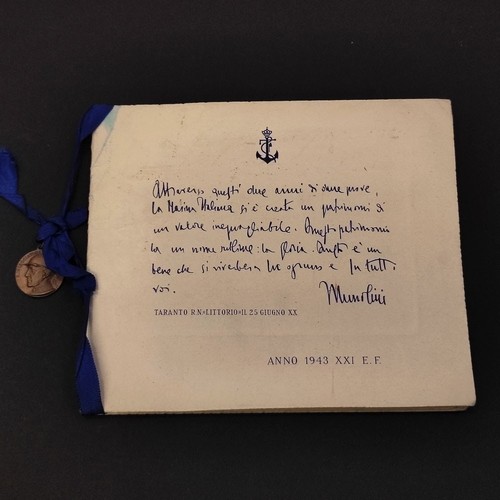 Attraverso questi due anni di dure prove,
la Marina Italiana si è creata un patrimonio di
un valore ineguagliabile. Questo patrimonio
ha un nome sublime: la gloria. Questo è un
bene che si riverbera su ognuno e su tutti
voi.
Mussolini
TARANTO R.N.«LITTORIO» IL 25 GIUGNO XX
ANNO 1943 XXI E.F.